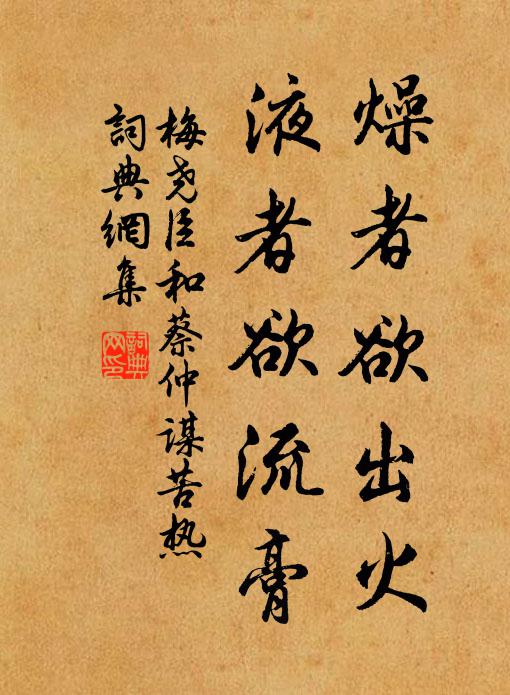 燥者欲出火
液者欲流膏
梅尧臣和蔡仲谋苦热
詞典網集
詞典網印